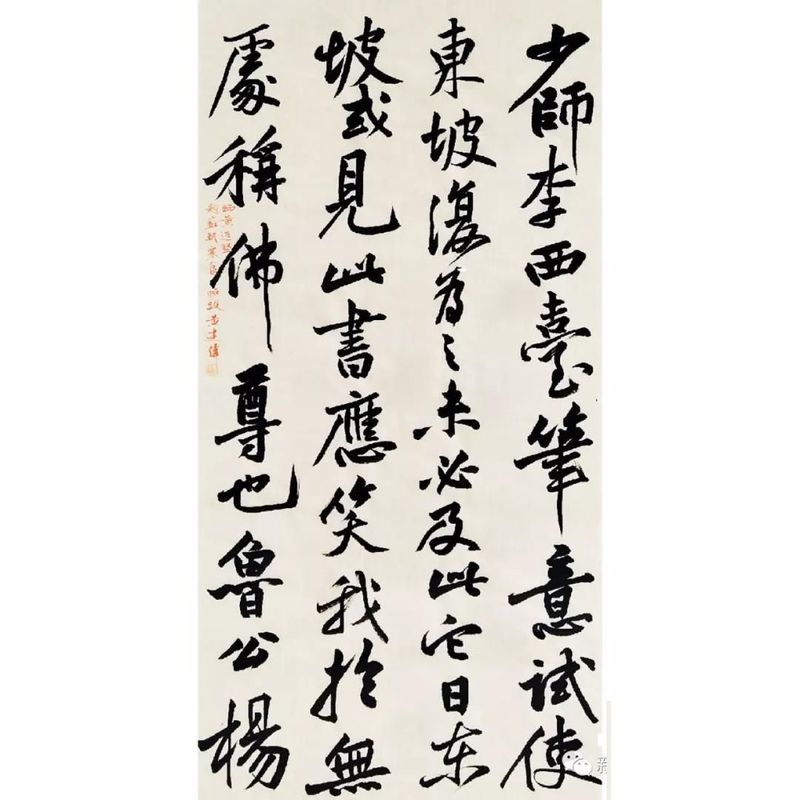 少師李西臺筆意試使
東坡復為之未必及此它日東
坡或見此書應笑我於無
處稱佛尊也魯公楊
新